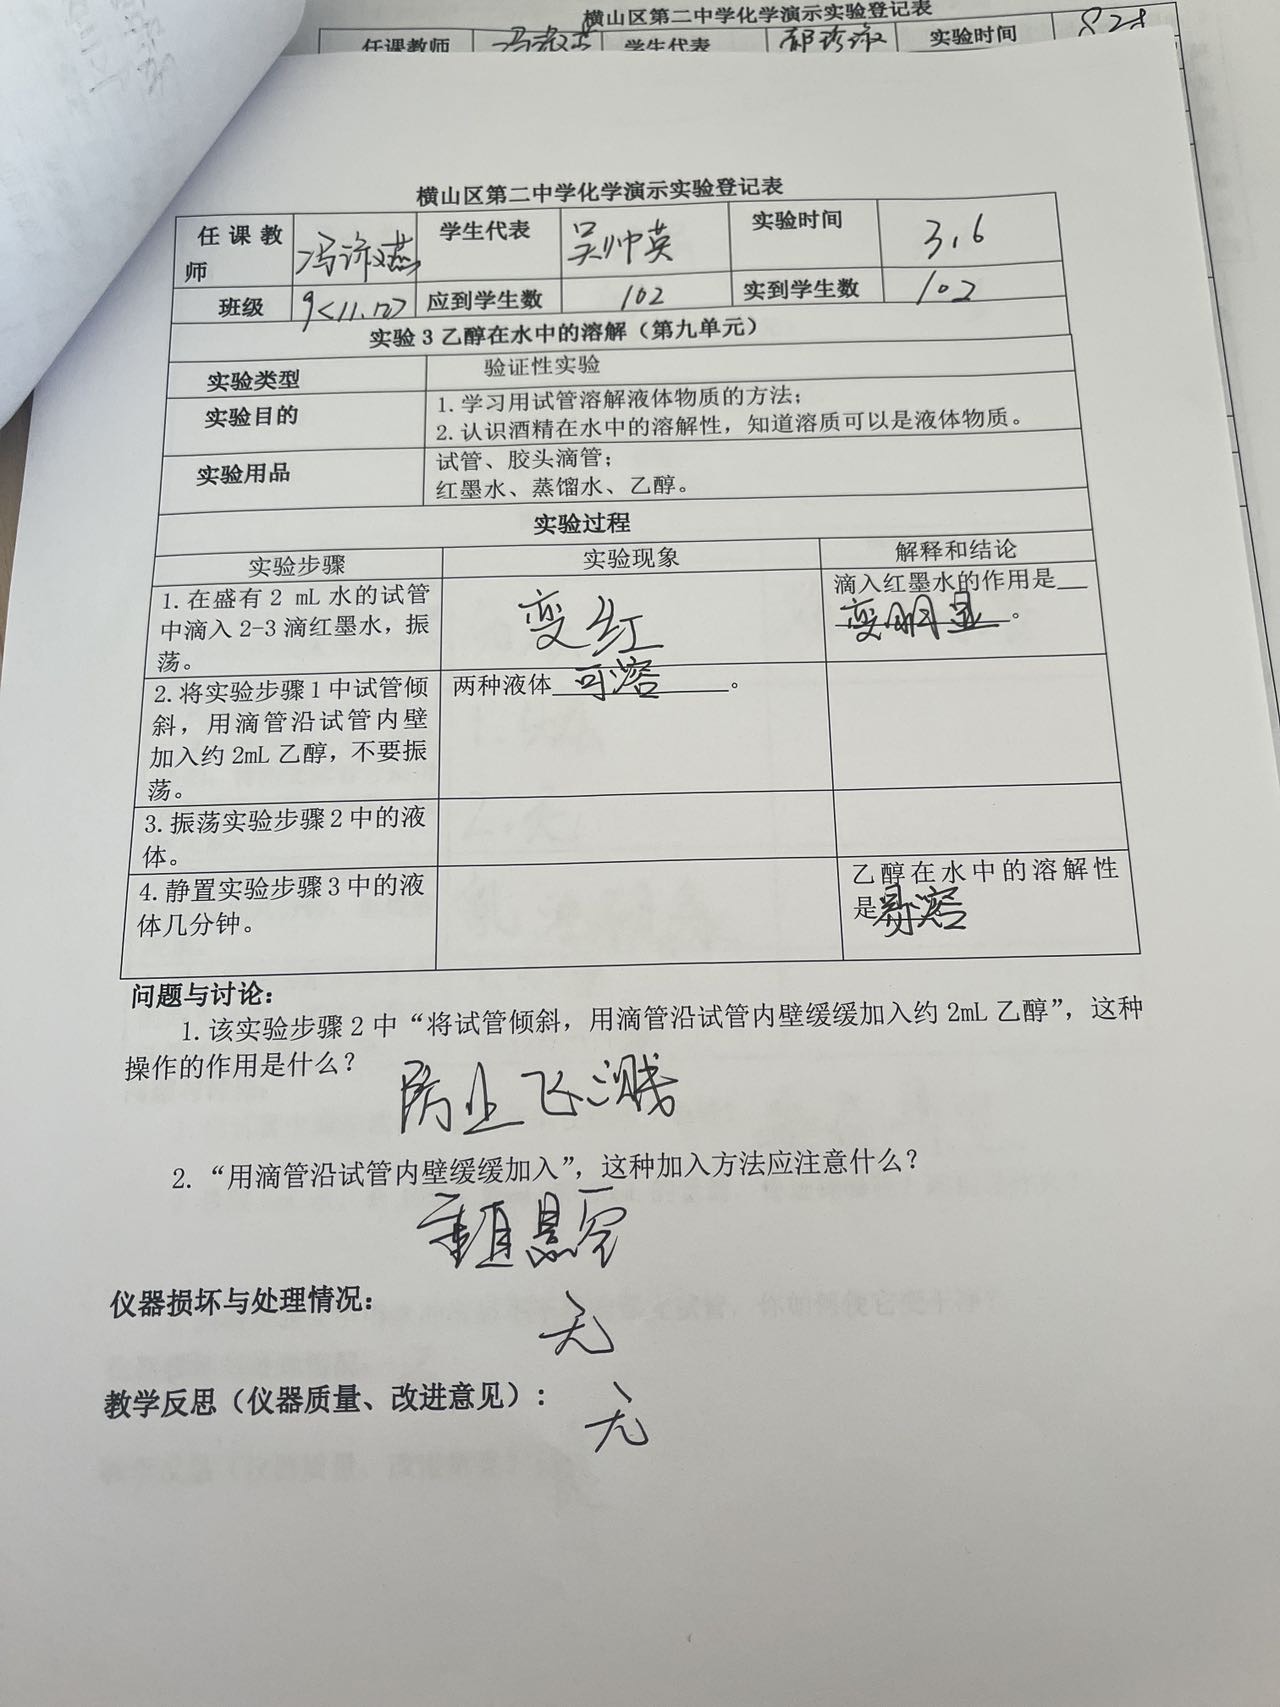 横山区第二中学化学演示实验登记表
任课教师 学生代表 实验时间 828
横山区第二中学化学演示实验登记表
任课教师 学生代表 吴帅英 实验时间 3.6
班级 9<11.12> 应到学生数 102 实到学生数 102
实验3乙醇在水中的溶解（第九单元）
实验类型 验证性实验
实验目的 1.学习用试管溶解液体物质的方法；
2.认识酒精在水中的溶解性，知道溶质可以是液体物质。
实验用品 试管、胶头滴管；
红墨水、蒸馏水、乙醇。
实验过程
实验步骤 实验现象 解释和结论
1.在盛有2 mL水的试管 滴入红墨水的作用是
中滴入2-3滴红墨水，振 变红 变明显。
荡。
2.将实验步骤1中试管倾 两种液体可溶。
斜，用滴管沿试管内壁
加入约2mL乙醇，不要振
荡。
3.振荡实验步骤2中的液
体。
4.静置实验步骤3中的液 乙醇在水中的溶解性
体几分钟。 是易溶
问题与讨论：
1.该实验步骤2中“将试管倾斜，用滴管沿试管内壁缓缓加入约2mL乙醇”，这种
操作的作用是什么？
防止飞溅
2.“用滴管沿试管内壁缓缓加入”，这种加入方法应注意什么？
垂直悬空
仪器损坏与处理情况：
无
教学反思（仪器质量、改进意见）：
无